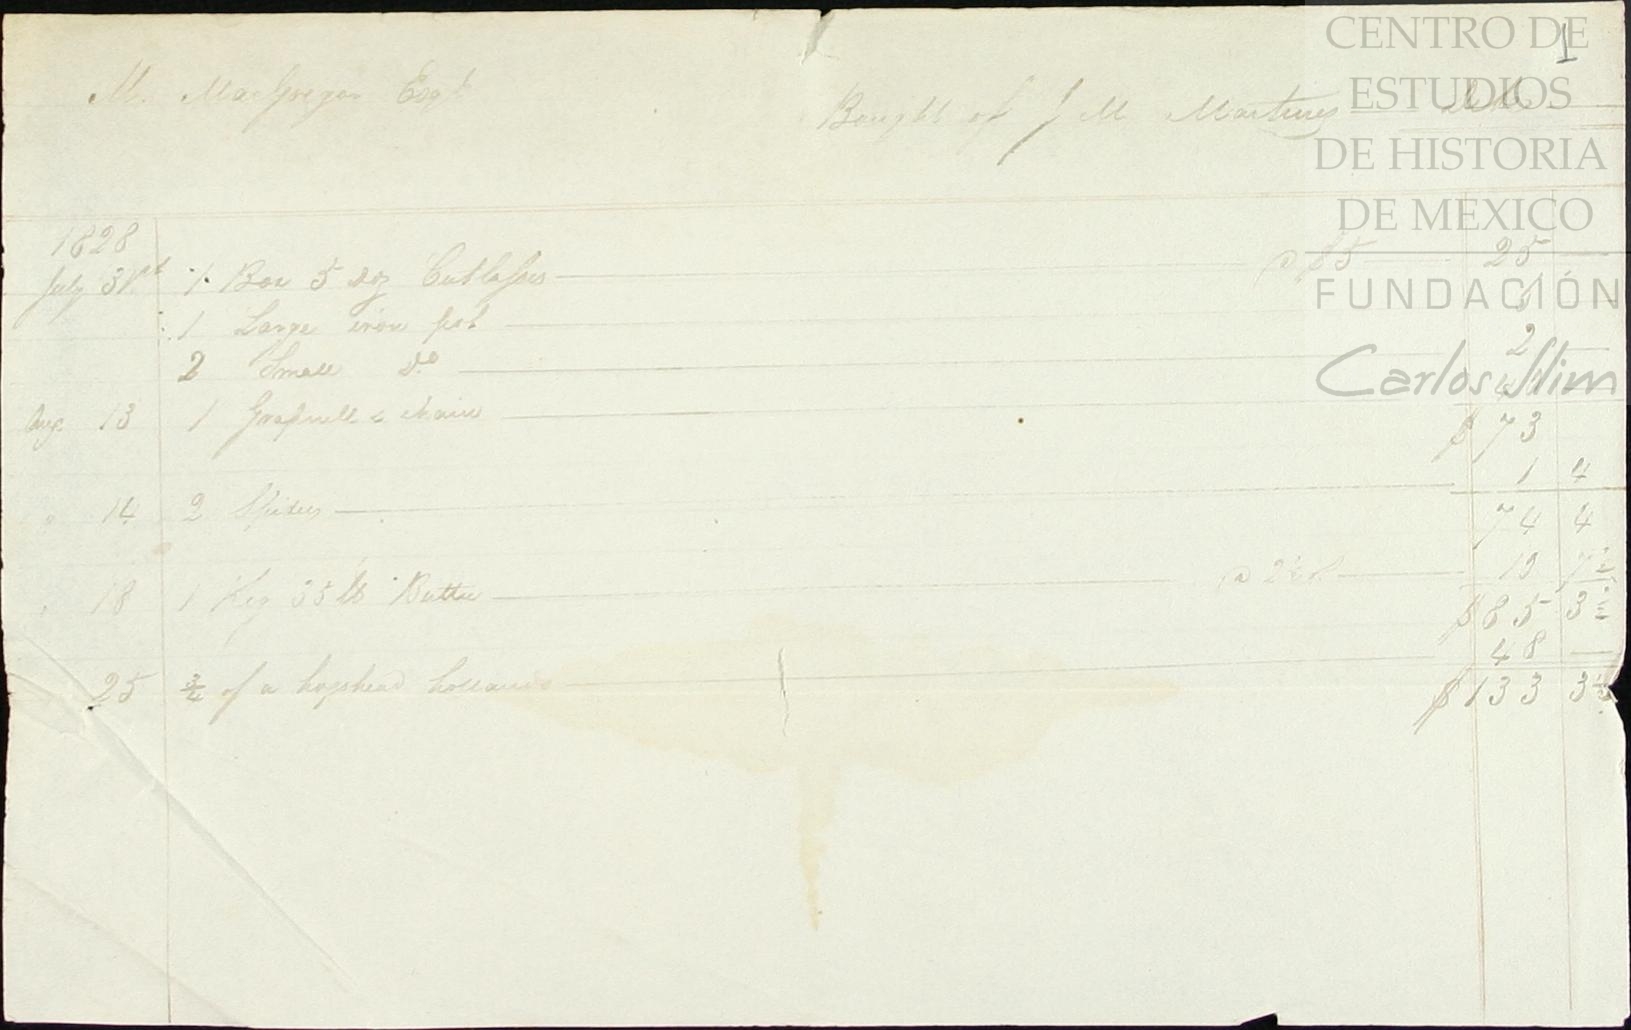 CENTRO DE
ESTUDIOS
DE HISTORIA
DE MÉXICO
FUNDACIÓN
Carlos Slim
1
M. MacGregor Esqr
Bought of J M Martines
1828
July 31st 1 Box 5 doz Cutlasses @ $5 25
1 Large iron pot
2 Small do 2
Aug. 13 1 Grapnell & chain
$ 73
1 4
" 14 2 Spiders
74 4
" 18 1 Keg 35 lb Butter @ 2½
10 7½
$ 85 3½
48
25 ¾ of a hogshead hollands
$ 133 3½